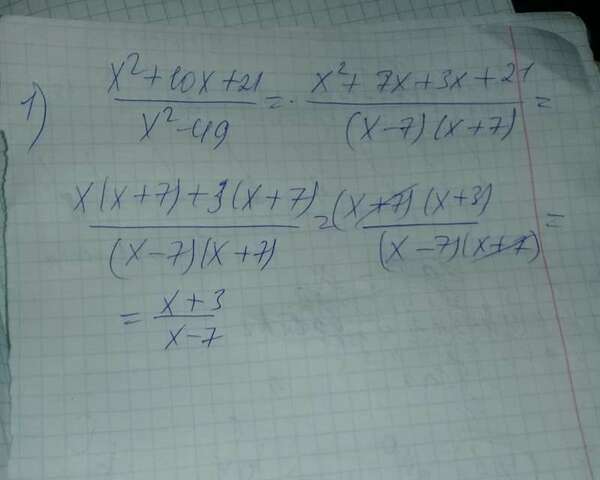 1) (x²+10x+21)/(x²-49) = (x²+7x+3x+21)/((x-7)(x+7)) =
(x(x+7)+3(x+7))/((x-7)(x+7)) = ((x+7)(x+3))/((x-7)(x+7)) =
= (x+3)/(x-7)